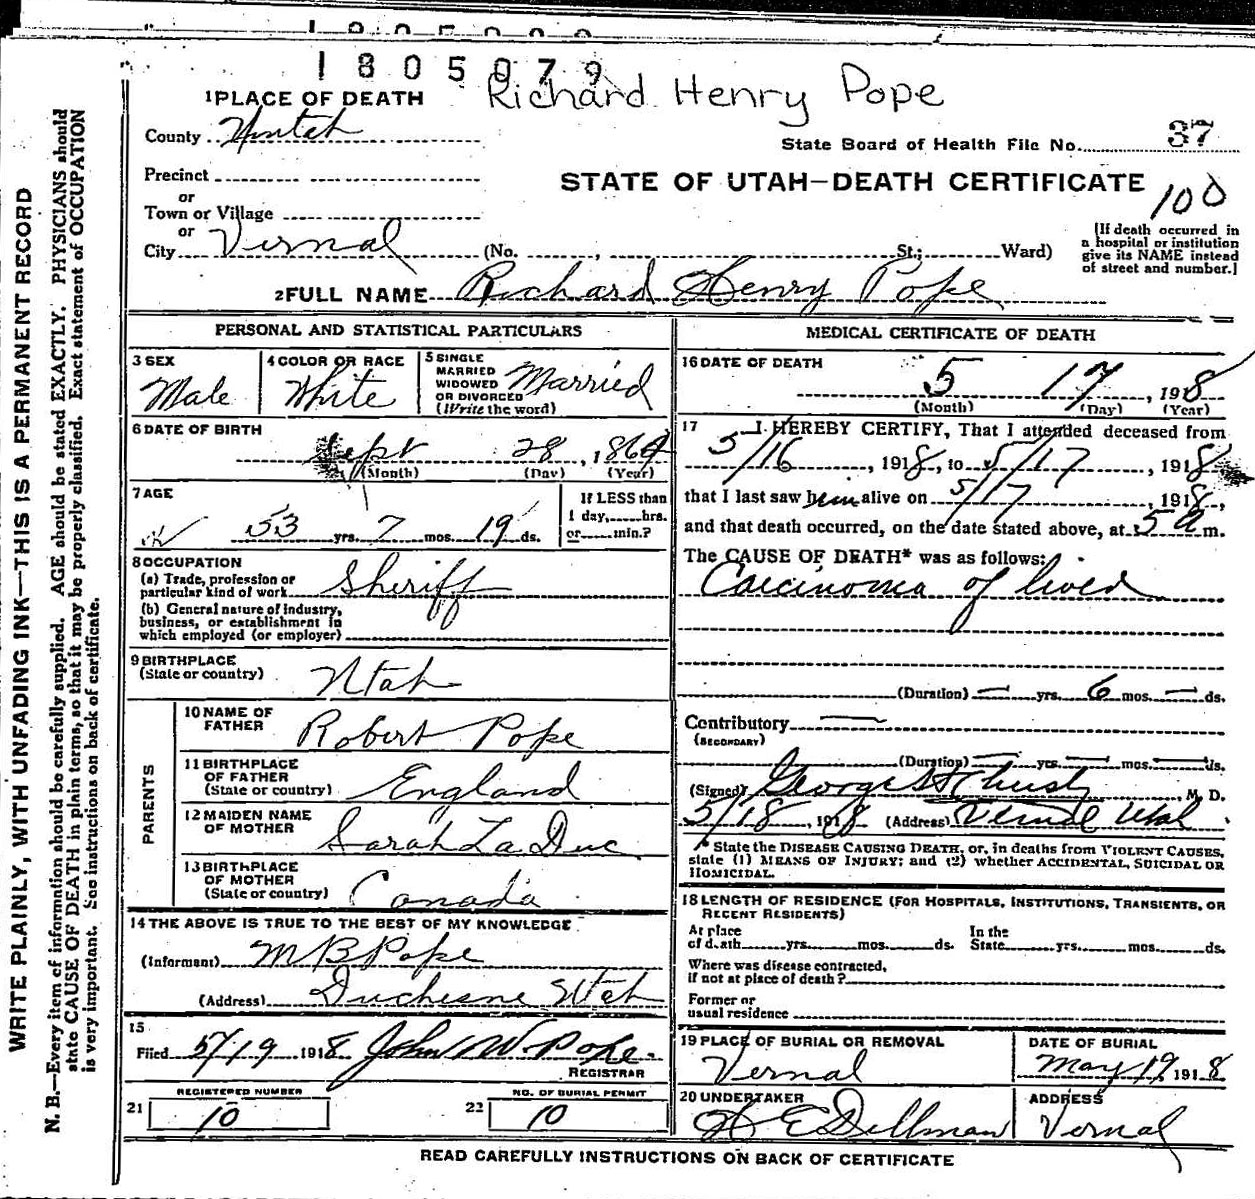 1805079
Richard Henry Pope
1 PLACE OF DEATH
County Uintah
State Board of Health File No. 37
Precinct
STATE OF UTAH—DEATH CERTIFICATE
100
or
Town or Village
or
City Vernal (No. , St.; Ward)
[If death occurred in
a hospital or institution
give its NAME instead
of street and number.]
2 FULL NAME Richard Henry Pope
PERSONAL AND STATISTICAL PARTICULARS
3 SEX
Male
4 COLOR OR RACE
White
5 SINGLE
MARRIED
WIDOWED
OR DIVORCED
(Write the word)
Married
6 DATE OF BIRTH
Sept 28, 1864
(Month) (Day) (Year)
7 AGE
53 yrs. 7 mos. 19 ds.
If LESS than
1 day, hrs.
or min.?
8 OCCUPATION
(a) Trade, profession or
particular kind of work Sheriff
(b) General nature of industry,
business, or establishment in
which employed (or employer)
9 BIRTHPLACE
(State or country) Utah
PARENTS
10 NAME OF
FATHER Robert Pope
11 BIRTHPLACE
OF FATHER
(State or country) England
12 MAIDEN NAME
OF MOTHER Sarah La Duc
13 BIRTHPLACE
OF MOTHER
(State or country) Canada
14 THE ABOVE IS TRUE TO THE BEST OF MY KNOWLEDGE
(Informant) M B Pope
(Address) Duchesne Utah
15
Filed 5/19 1918 John W. Pope.
REGISTRAR
REGISTERED NUMBER
21 10
NO. OF BURIAL PERMIT
22 10
MEDICAL CERTIFICATE OF DEATH
16 DATE OF DEATH
5 17, 1918
(Month) (Day) (Year)
17 I HEREBY CERTIFY, That I attended deceased from
5/16, 1918, to 5/17, 1918
that I last saw him alive on 5/17, 1918,
and that death occurred, on the date stated above, at 5 a m.
The CAUSE OF DEATH* was as follows:
Carcinoma of liver
(Duration) — yrs. 6 mos. — ds.
Contributory —
(SECONDARY)
(Duration) — yrs. — mos. — ds.
(Signed) George M. D.
5/18, 1918 (Address) Vernal Utah
* State the DISEASE CAUSING DEATH, or, in deaths from VIOLENT CAUSES,
state (1) MEANS OF INJURY; and (2) whether ACCIDENTAL, SUICIDAL OR
HOMICIDAL.
18 LENGTH OF RESIDENCE (FOR HOSPITALS, INSTITUTIONS, TRANSIENTS, OR
RECENT RESIDENTS)
At place
of death yrs. mos. ds.
In the
State yrs. mos. ds.
Where was disease contracted,
if not at place of death?
Former or
usual residence
19 PLACE OF BURIAL OR REMOVAL
Vernal
DATE OF BURIAL
May 19, 1918
20 UNDERTAKER
W E Dillman
ADDRESS
Vernal
READ CAREFULLY INSTRUCTIONS ON BACK OF CERTIFICATE
WRITE PLAINLY, WITH UNFADING INK—THIS IS A PERMANENT RECORD
N. B.—Every item of information should be carefully supplied. AGE should be stated EXACTLY. PHYSICIANS should
state CAUSE OF DEATH in plain terms, so that it may be properly classified. Exact statement of OCCUPATION
is very important. See instructions on back of certificate.